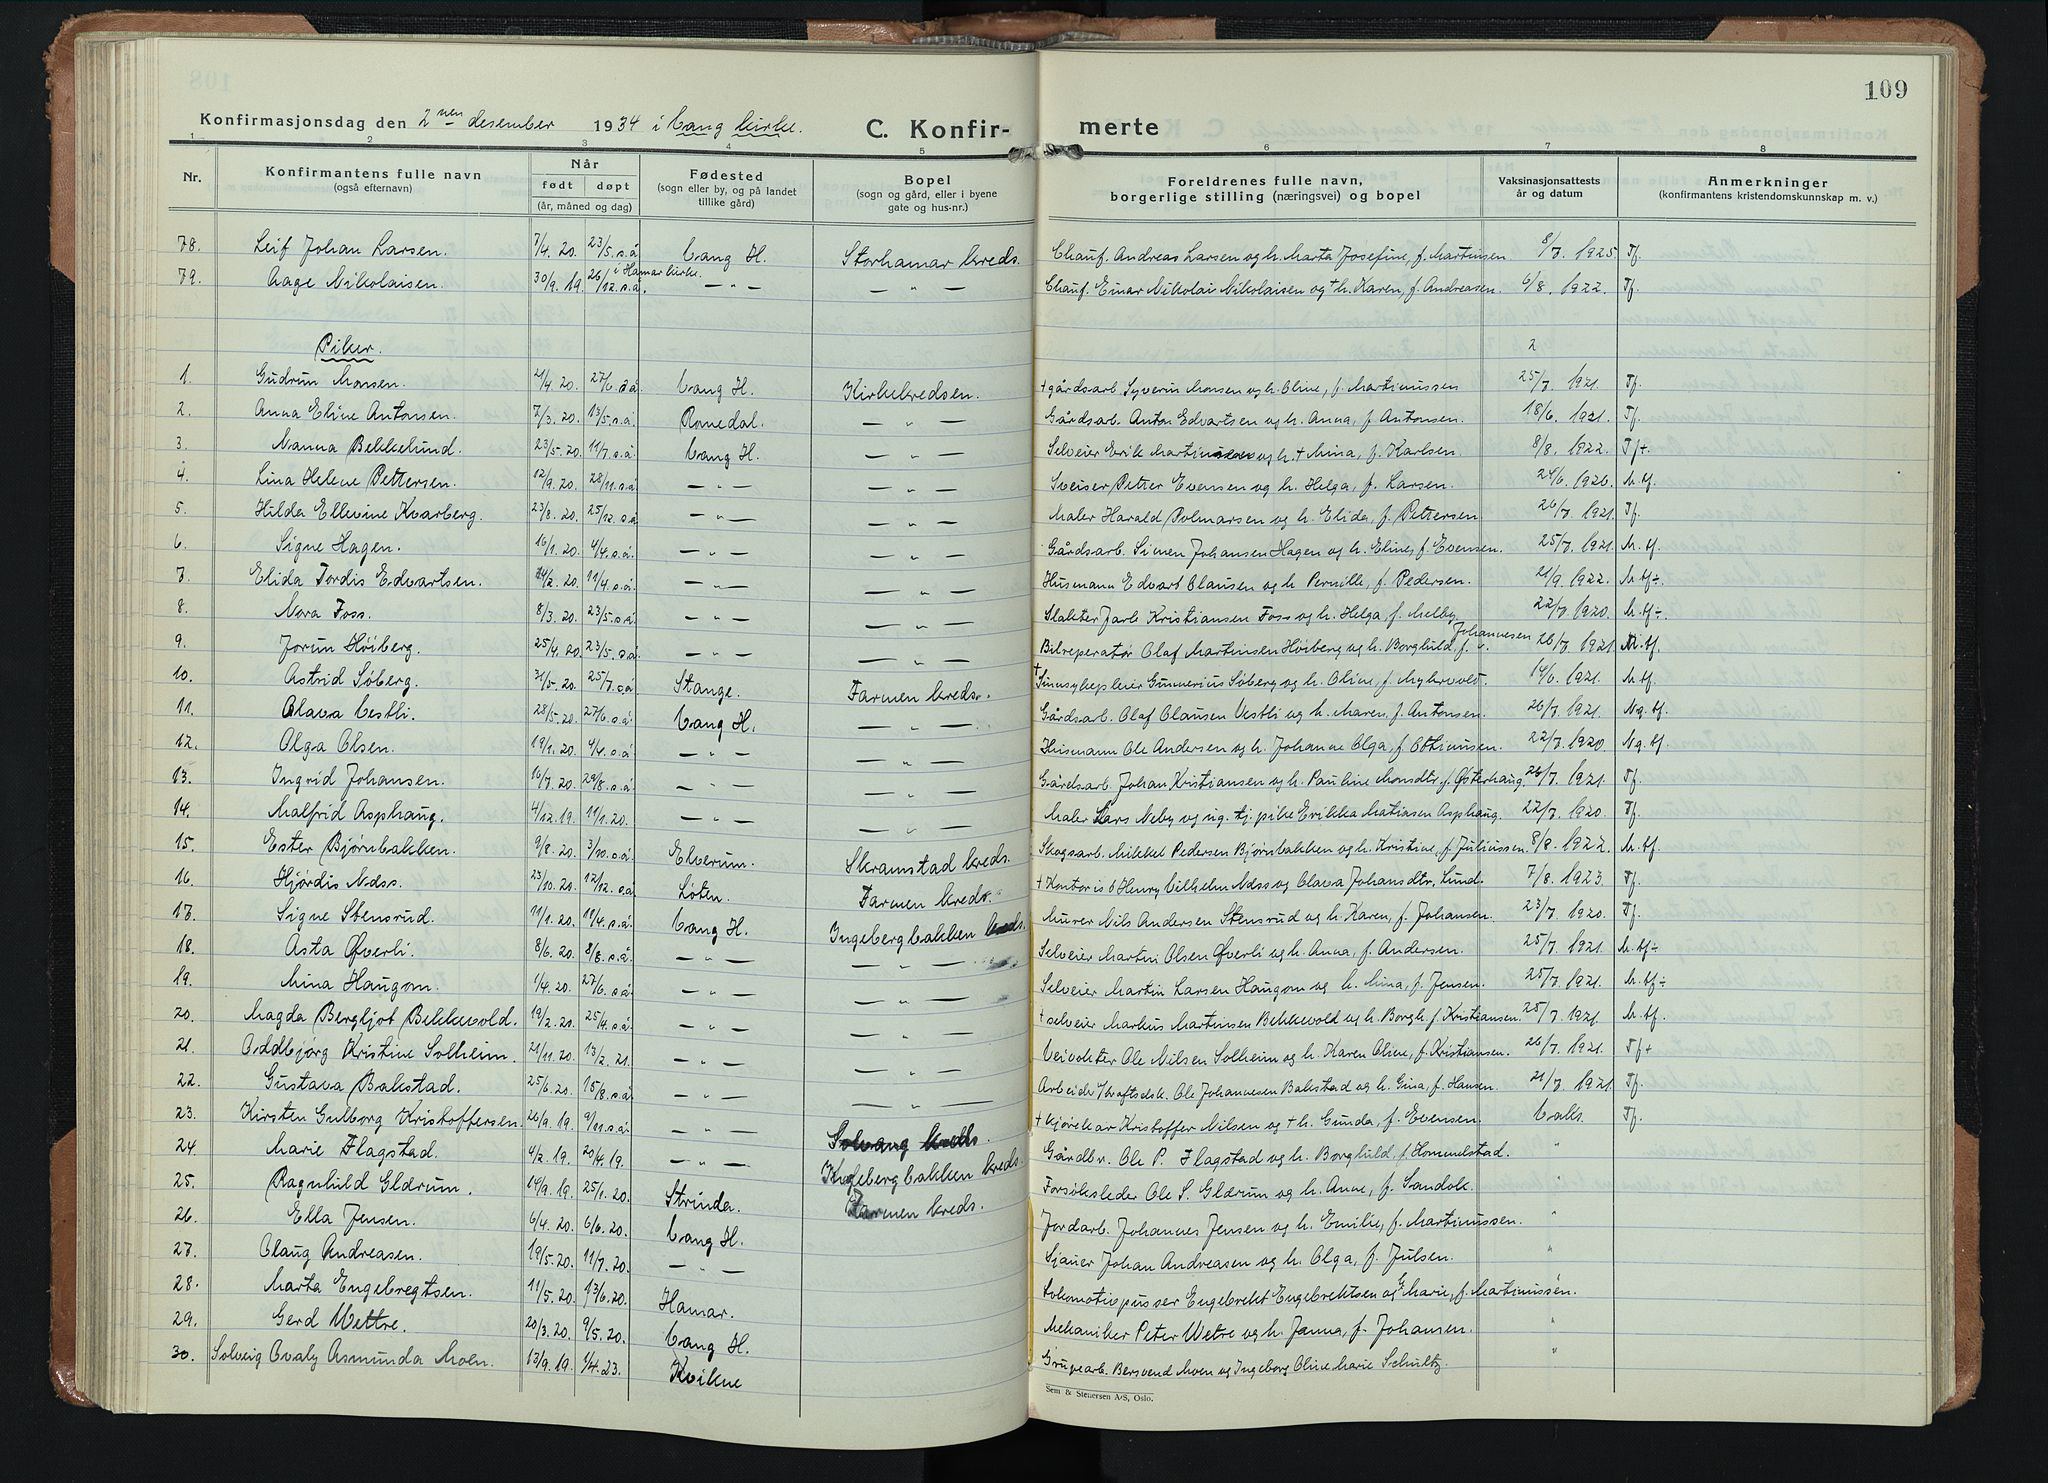 109
Konfirmasjonsdag den 2nen desember 1934 i Vang kirke.
C. Konfir- merte
1 2 3 4 5 6 7 8
Nr. Konfirmantens fulle navn (også efternavn) Når født døpt (år, måned og dag) Fødested (sogn eller by, og på landet tillike gård) Bopel (sogn og gård, eller i byene gate og hus-nr.) Foreldrenes fulle navn, borgerlige stilling (næringsvei) og bopel Vaksinasjonsattests år og datum Anmerkninger (konfirmantens kristendomskunnskap m. v.)
78. Leif Johan Larsen. 7/4. 20. 23/5. s.å. Vang H. Storhamar kreds. Chauf. Andreas Larsen og h. Marta Josefine, f. Martinsen 8/7. 1925. Tf.
79. Aage Nikolaisen. 30/9. 19. 26/12. s.å. i Hamar kirke. — " — — " — Chauf. Einar Nikolai Nikolaisen og + h. Karen, f. Andreasen. 6/8. 1922. Tf.
Piker. 2
1. Gudrun Monsen. 21/4. 20. 27/6. s.å. Vang H. Kirkekredsen. + gårdsarb. Syverin Monsen og h. Oline, f. Martinussen 25/7. 1921. Tf.
2. Anna Eline Antonsen. 7/3. 20. 13/5. s.å. Romedal. — " — Gårdsarb. Anton Edvartsen og h. Anna, f. Antonsen. 18/6. 1921. Tf.
3. Nanna Bekkelund. 23/5. 20. 11/7. s.å. Vang H. — " — Selveier Erik Martinsen og h. + Mina, f. Karlsen. 8/8. 1922. Tf+.
4. Lina Helene Pettersen. 12/9. 20. 28/11. s.å. — " — — " — Sveiser Petter Evensen og h. Helga, f. Larsen. 24/6. 1926. M. tf.
5. Hilda Ellevine Kvarberg. 23/8. 20. 25/12. s.å. — " — — " — Maler Harald Polmarsen og h. Elida, f. Pettersen 26/7. 1921. Tf.
6. Signe Hagen. 16/1. 20. 4/4. s.å. — " — — " — Gårdsarb. Simen Johansen Hagen og h. Eline, f. Evensen. 25/7. 1921. M. tf.
7. Elida Tordis Edvartsen. 14/2. 20. 11/4. s.å. — " — — " — Husmann Edvart Olausen og h. Pernille, f. Pedersen. 21/9. 1922. M. tf÷.
8. Nora Foss. 8/3. 20. 23/5. s.å. — " — — " — Slakter Jarb Kristiansen Foss og h. Helga, f. Melby. 22/7. 1920. M. tf÷
9. Jorun Höiberg. 25/4. 20. 23/5. s.å. — " — — " — Bilreperatør Olaf Martinsen Höiberg og h. Borghild, f. Johannesen 26/7. 1921. M. tf.
10. Astrid Söberg. 31/5. 20. 25/7. s.å. Stange. Farmen kreds. + Sinnsykepleier Gunnerius Söberg og h. Oline, f. Myhrvold. 14/6. 1921. M. tf.
11. Olava Vestli. 28/5. 20. 27/6. s.å. Vang H. — " — Gårdsarb. Olaf Olausen Vestli og h. Maren, f. Antonsen. 26/7. 1921. Ng. tf.
12. Olga Olsen. 19/1. 20. 4/4. s.å. — " — — " — Husmann Ole Andersen og h. Johanne Olga, f. Ottinusen. 22/7. 1920. Ng. tf.
13. Ingrid Johansen. 16/7. 20. 29/8. s.å. — " — — " — Gårdsarb. Johan Kristiansen og h. Pauline Monsdtr, f. Østerhaug. 26/7. 1921. Tf.
14. Malfrid Asphaug. 4/12. 19. 11/1. 20. — " — — " — Maler Lars Neby og ug. tj. pike Erikka Matiasen Asphaug. 22/7. 1920. Tf.
15. Ester Bjørnbakken. 9/8. 20. 3/10. s.å. Elverum. Skramstad kreds. Skogsarb. Mikkel Pedersen Bjørnbakken og h. Kristine, f. Juliussen. 8/8. 1922. M. tf.
16. Hjørdis Næss. 23/10. 20. 12/12. s.å. Løten. Farmen kreds. + Kontorist Henry Vilhelm Næss og Olava Johansdtr. Lund. 7/8. 1923. Tf.
17. Signe Stensrud. 11/1. 20. 18/4. s.å. Vang H. Ingebergbakken kreds. Murer Nils Andersen Stensrud og h. Karen, f. Johansen. 23/7. 1920. Tf.
18. Asta Øverli. 8/6. 20. 8/8. s.å. — " — — " — Selveier Martin Olsen Øverli og h. Anna, f. Andersen. 25/7. 1921. M. tf÷
19. Mina Haugom. 1/4. 20. 27/6. s.å. — " — — " — Selveier Martin Larsen Haugom og h. Mina, f. Jensen. 25/7. 1921. M. tf÷
20. Magda Bergljot Bekkevold. 19/2. 20. 25/4. s.å. — " — — " — + selveier Markus Martinsen Bekkevold og h. Borgh. f. Kristiansen. 25/7. 1921. M. tf.
21. Oddbjørg Kristine Solheim. 21/11. 20. 13/2. 21. — " — — " — Veivokter Ole Nilsen Solheim og h. Karen Oline, f. Kristiansen. 26/7. 1921. Tf+
22. Gustava Bakstad. 25/6. 20. 15/8. s.å. — " — — " — Arbeider Kraftselsk. Ole Johannesen Bakstad og h. Gina, f. Hansen. 21/7. 1921. Tf.
23. Kirsten Gulborg Kristoffersen. 26/9. 19. 9/11. s.å. — " — Solvang kreds. + kjørekar Kristoffer Nilsen og + h. Gunda, f. Evensen. Vaks. Tf.
24. Marie Flagstad. 4/2. 19. 20/4. 19. — " — Ingebergbakken kreds. Gårdbr. Ole P. Flagstad og h. Borghild, f. Hommelstad. "
25. Ragnhild Glærum. 14/9. 19. 25/1. 20. Strinda. Farmen kreds. Forsøksleder Ole S. Glærum og h. Anne, f. Sandok. "
26. Ella Jensen. 6/4. 20. 6/6. 20. Vang H. Jordarb. Johannes Jensen og h. Emilie, f. Martinussen. "
27. Olaug Andreasen. 19/5. 20. 11/7. 20. — " — Sjauer Johan Andreasen og h. Olga, f. Julsen. "
28. Marta Engebregtsen. 11/5. 20. 13/6. 20. Hamar. Lokomotivpusser Engebrekt Engebrektsen og G. Marie, f. Martinussen. "
29. Gerd Wettre. 20/3. 20. 9/5. 20. Vang H. Mekaniker Peter Wetre og h. Janna, f. Johansen. "
30. Solveig Ovaly Asmunda Moen. 13/9. 19. 1/4. 23. Kvikne Grupearb. Bersvend Moen og Ingeborg Oline Marie Schultz. "
Sem & Stenersen A/S, Oslo.